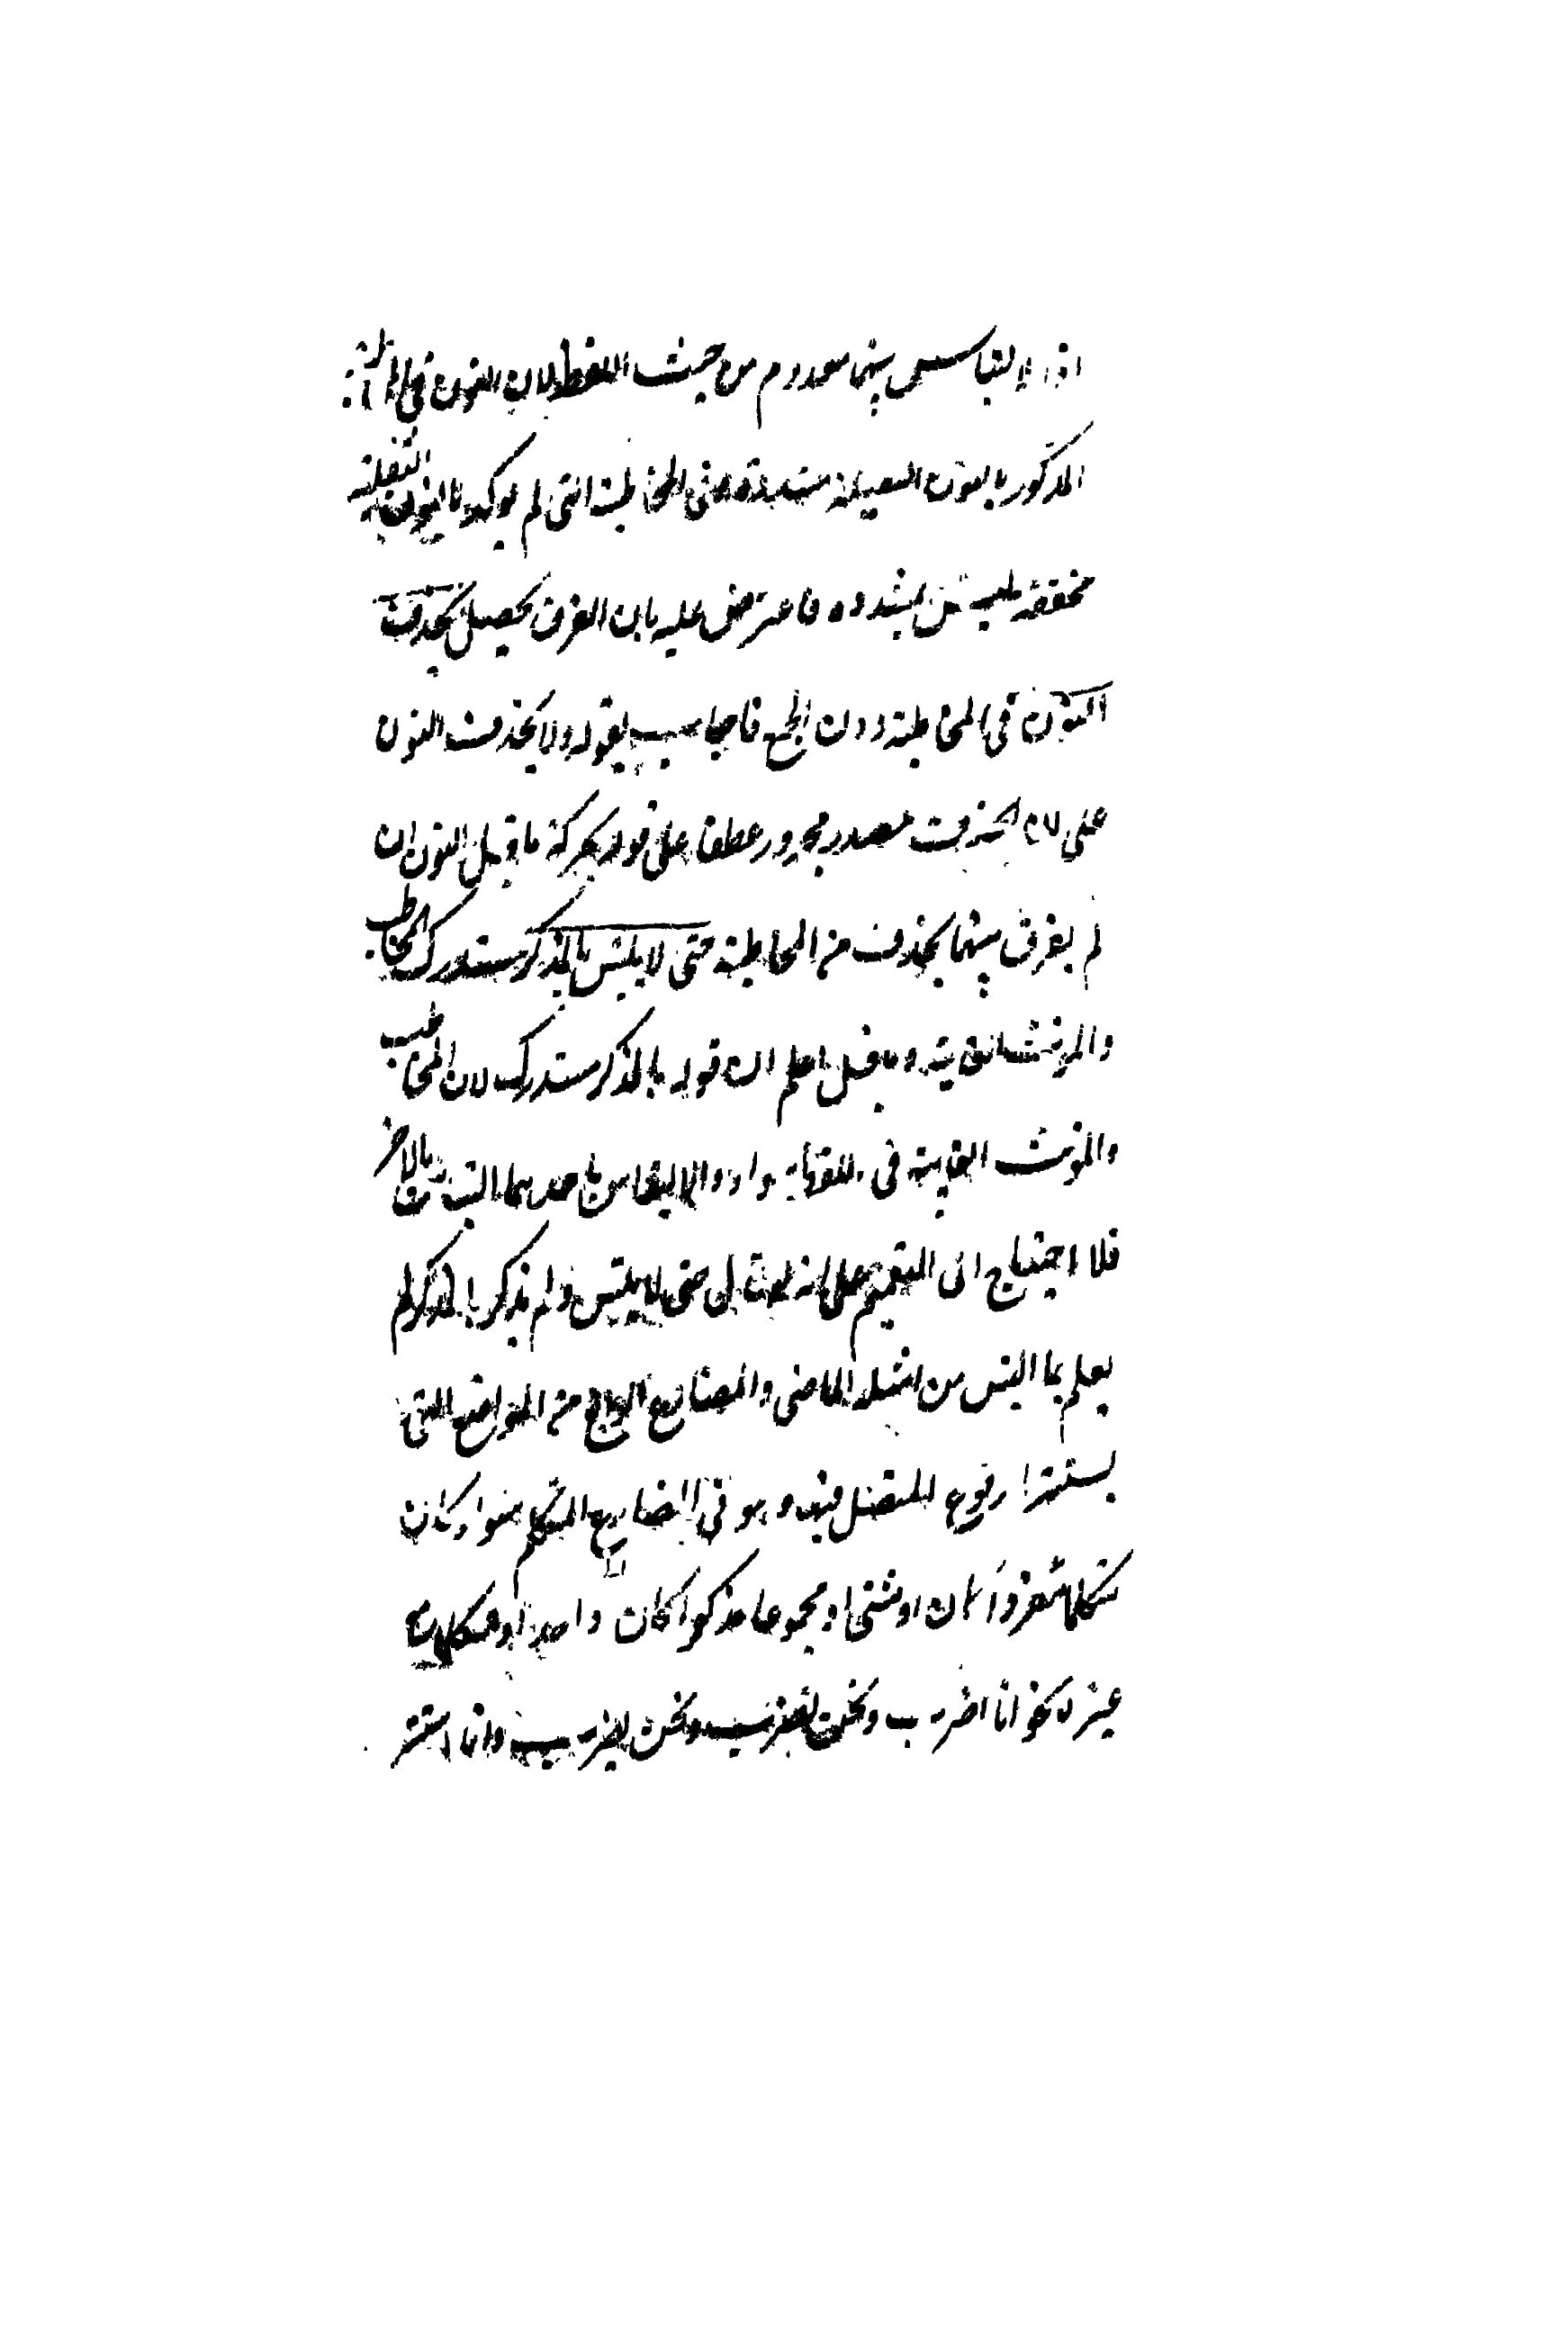 اذ الالتباس بينهما معدوم من حيث اللفظ لان النون في المؤنث
المذكور بالنون الثقيلة مشددة وفي المخاطبة التي لم يوكد بالنون الثقيلة
مخففة فليس بمشددة فاعترض عليه بان الفرق يحصل بحذف
النون في المخاطبة دون الجمع فاجاب بقوله ولا بحذف النون
على ان الحذف مصدر مجرور عطفا على قوله بحركة ما قبل النون ان
لم يفرق بينهما بحذف من المخاطبة حتى لا يلتبس بالمذكر مستدرك المخاطب
والمؤنث الغائبة وما قبل اعلم ان قوله بالمذكر مستدرك لان المخاطب
والمؤنث الغايبة في اللفظ واحد والالتباس باحدهما التباس بالاخر
فلا احتياج الى التتميم على انه لو قال حتى لا يلتبس ولم يذكر بالمذكر لم
يعلم بما التبس من امثلة الماضي والمضارع الرابع من المواضع التي
يستتر المرفوع المتصل فيه وهو في المضارع المتكلم سواء كان
متكلما مفردا كان او مثنى او مجموعا مذكرا كان واحدا او متكلما مع
غيره نحو انا اضرب ونحن نضرب ونحن نضرب وانا استتر